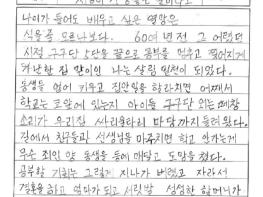 나이가 들어도 배우고 싶은 열망은
식을줄 모르나보다. 60여년전 그 어렵던
시절 구구단 2단을 끝으로 공부를 멈추고 찢어지게
가난한 집 맏이인 나는 살림 밑천이 되었다.
동생을 업어 키우고 집안일을 하라치면 어찌해서
학교는 코앞에 있는지 아이들 구구단 외는 떼창
소리가 우리집 사리울타리 마당까지 들려왔다.
길에서 친구들과 선생님을 마주치면 학교 안가는게
무슨 죄인 양 동생을 등에 매달고 도망을 쳤다.
공부할 기회는 그렇게 지나가 버렸고 자라서
결혼을하고 엄마가 되고 서릿발 성성한 할머니가